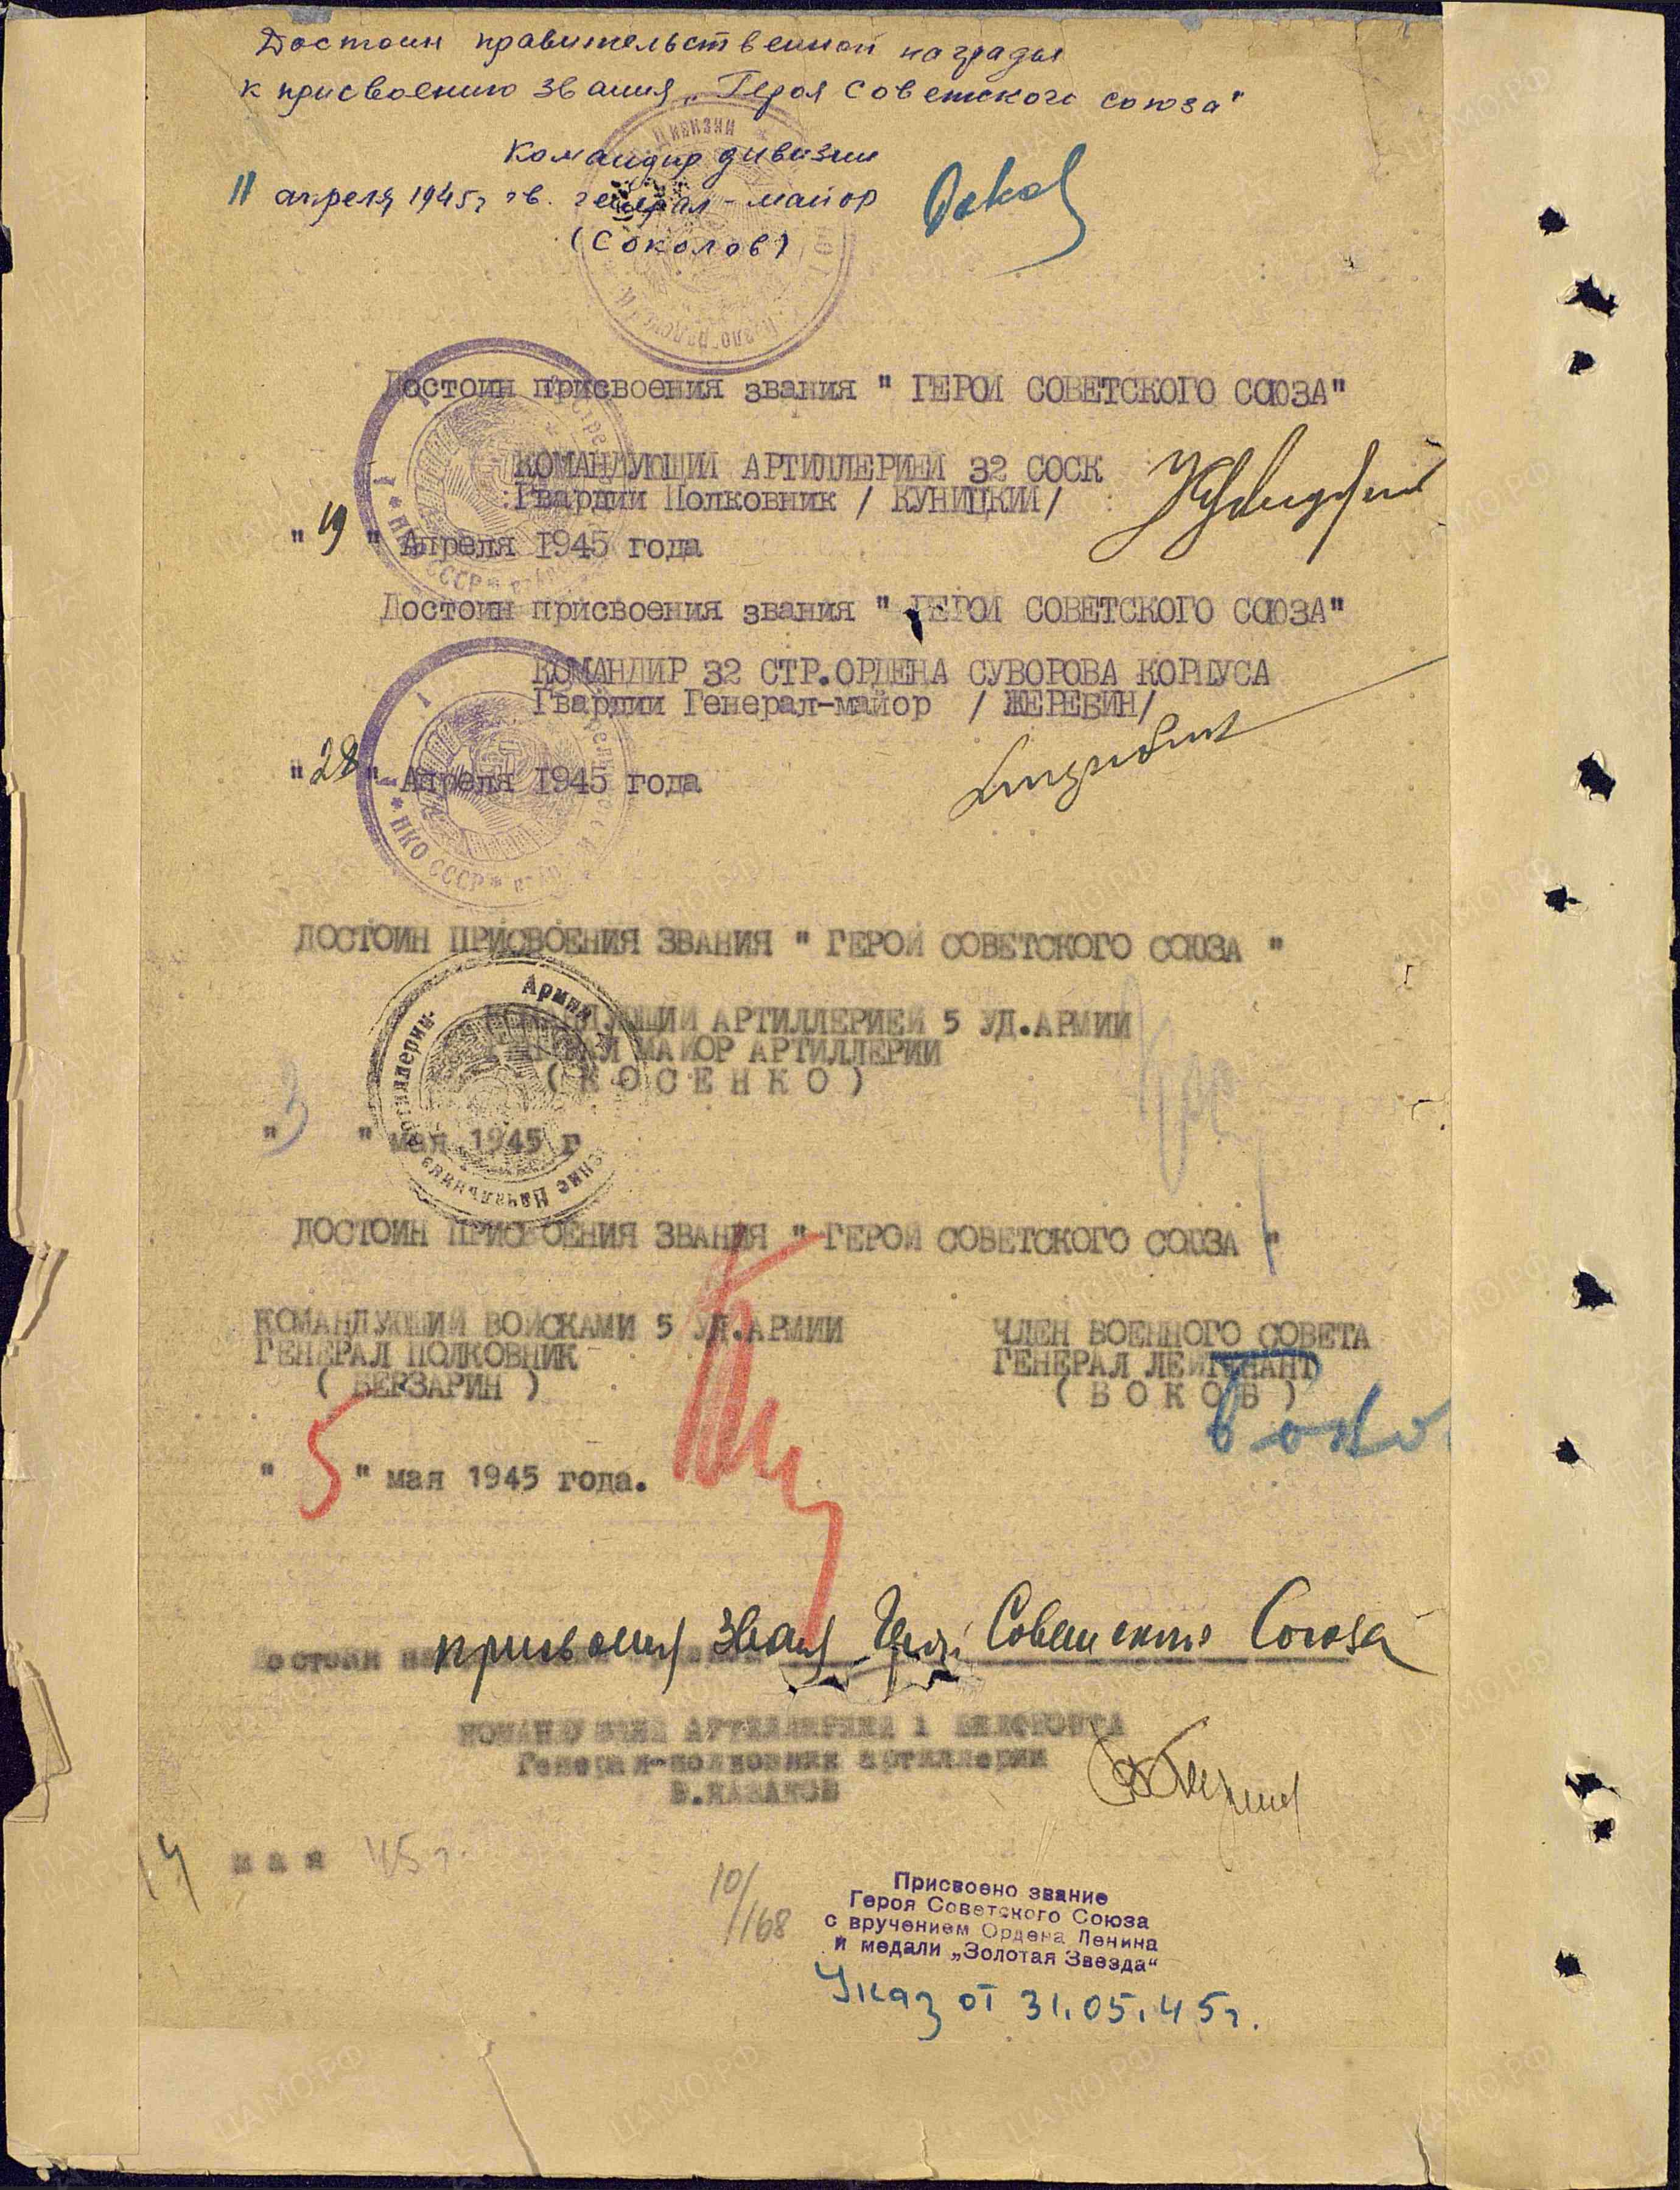 Достоин правительственной награды
к присвоению звания „Героя Советского союза"
Командир дивизии
11 апреля 1945г гв. генерал-майор
(Соколов)
Достоин присвоения звания " ГЕРОЙ СОВЕТСКОГО СОЮЗА"
КОМАНДУЮЩИЙ АРТИЛЛЕРИЕЙ 32 СОСК
Гвардии Полковник / КУНИЦКИЙ/
" 19 " Апреля 1945 года
НКО СССР
Достоин присвоения звания " ГЕРОЙ СОВЕТСКОГО СОЮЗА"
КОМАНДИР 32 СТР.ОРДЕНА СУВОРОВА КОРПУСА
Гвардии Генерал-майор / ЖЕРЕБИН/
"28" Апреля 1945 года
НКО СССР
ДОСТОИН ПРИСВОЕНИЯ ЗВАНИЯ " ГЕРОЙ СОВЕТСКОГО СОЮЗА "
Армии
КОМАНДУЮЩИЙ АРТИЛЛЕРИЕЙ 5 УД.АРМИИ
ГЕНЕРАЛ МАЙОР АРТИЛЛЕРИИ
( К О С Е Н К О )
" 3 " мая 1945 г
ДОСТОИН ПРИСВОЕНИЯ ЗВАНИЯ " ГЕРОЙ СОВЕТСКОГО СОЮЗА "
КОМАНДУЮЩИЙ ВОЙСКАМИ 5 УД.АРМИИ
ГЕНЕРАЛ ПОЛКОВНИК
( БЕРЗАРИН )
ЧЛЕН ВОЕННОГО СОВЕТА
ГЕНЕРАЛ ЛЕЙТЕНАНТ
( Б О К О В )
" 5 " мая 1945 года.
Достоин присвоения звания Героя Советского Союза
КОМАНДУЮЩИЙ АРТИЛЛЕРИЕЙ 1 БЕЛФРОНТА
Генерал-полковник артиллерии
В.КАЗАКОВ
14 мая 45 г.
10/168
Присвоено звание
Героя Советского Союза
с вручением Ордена Ленина
и медали „Золотая Звезда"
Указ от 31.05.45г.